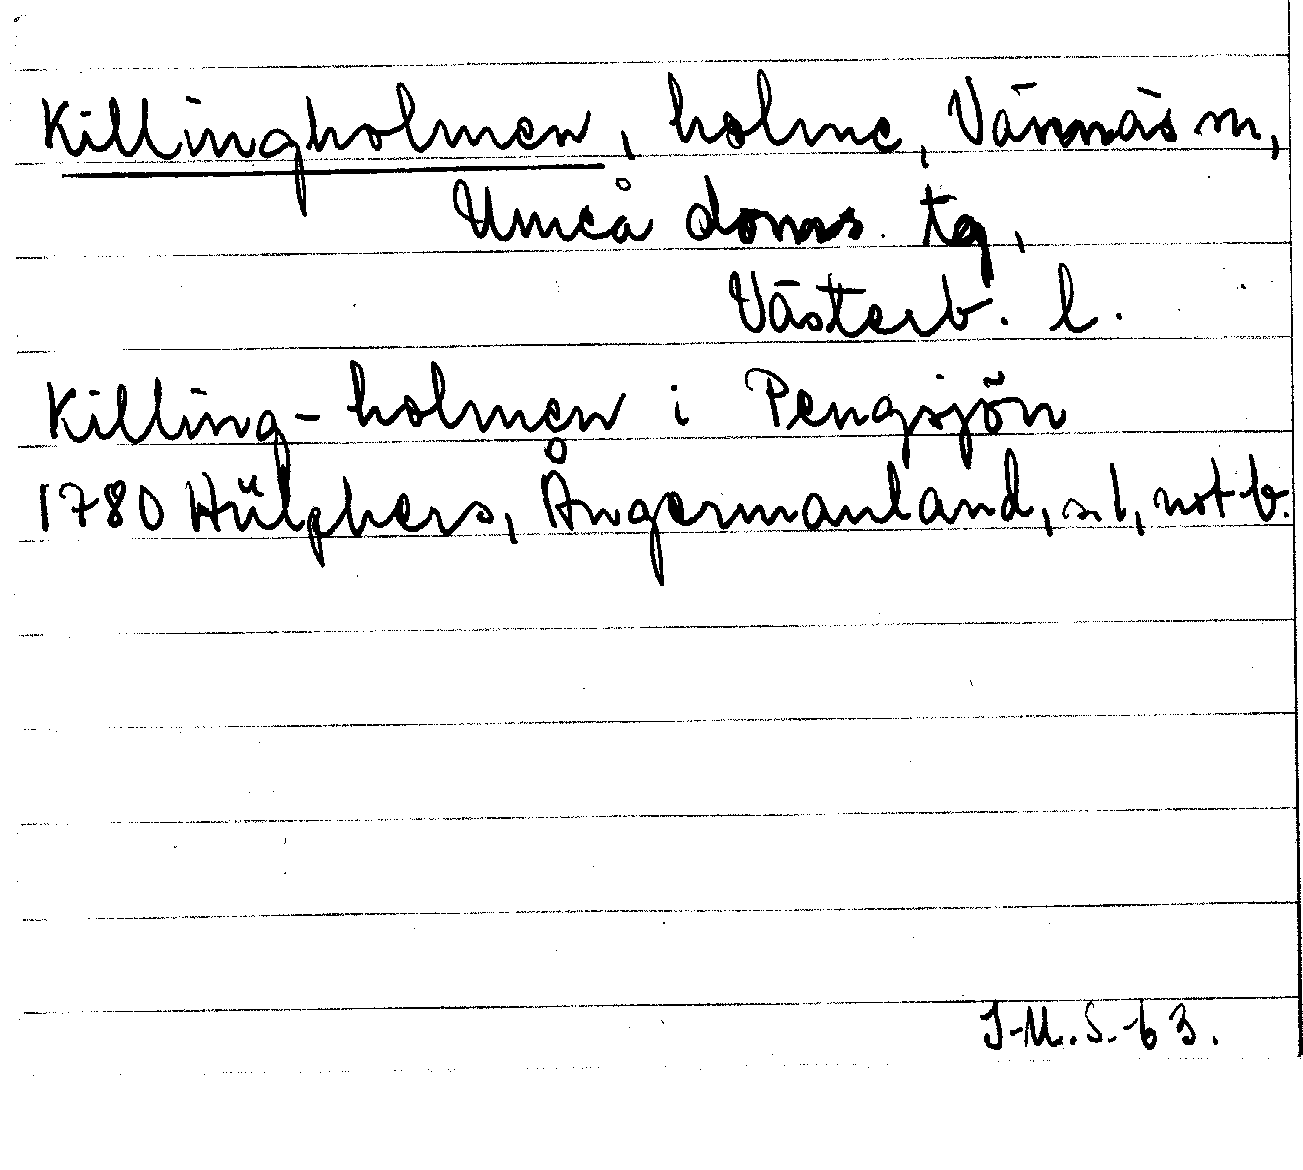 Killingholmen, holme, Vännäs sn,
Umeå doms. tg,
Västerb. l.
Killing-holmen i Pengsjön
1780 Hülphers, Ångermanland, s. 1, not b.
J-M. S. 63.